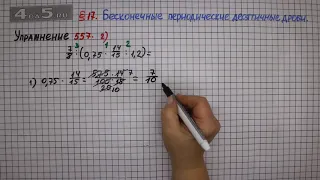 4 5
§17. Бесконечные периодические десятичные дроби.
Упражнение 557. 2)
: (0,75 · 14/15 : 1,2) =
1) 0,75 · 14/15 = = 7/10